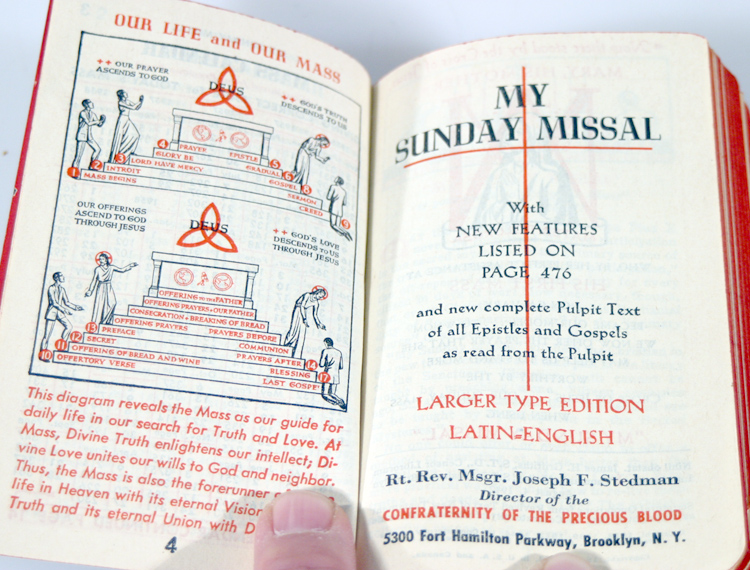 OUR LIFE and OUR MASS
++ OUR PRAYER
ASCENDS TO GOD
DEUS
++ GOD'S TRUTH
DESCENDS TO US
4 PRAYER EPISTLE 5
GLORY BE GRADUAL 6
3 LORD HAVE MERCY GOSPEL
2 INTROIT SERMON 8
1 MASS BEGINS CREED 9
OUR OFFERINGS
ASCEND TO GOD
THROUGH JESUS
DEUS
++ GOD'S LOVE
DESCENDS TO US
THROUGH JESUS
OFFERING TO THE FATHER
OFFERING PRAYERS OUR FATHER
CONSECRATION BREAKING OF BREAD
OFFERING PRAYERS PRAYERS BEFORE
13 PREFACE COMMUNION
12 SECRET PRAYERS AFTER 14
11 OFFERING OF BREAD AND WINE BLESSING
10 OFFERTORY VERSE LAST GOSPEL 17
This diagram reveals the Mass as our guide for
daily life in our search for Truth and Love. At
Mass, Divine Truth enlightens our intellect; Di-
vine Love unites our wills to God and neighbor.
Thus, the Mass is also the forerunner
life in Heaven with its eternal Vision
Truth and its eternal Union with
4
MY
SUNDAY MISSAL
With
NEW FEATURES
LISTED ON
PAGE 476
and new complete Pulpit Text
of all Epistles and Gospels
as read from the Pulpit
LARGER TYPE EDITION
LATIN=ENGLISH
Rt. Rev. Msgr. Joseph F. Stedman
Director of the
CONFRATERNITY OF THE PRECIOUS BLOOD
5300 Fort Hamilton Parkway, Brooklyn, N. Y.